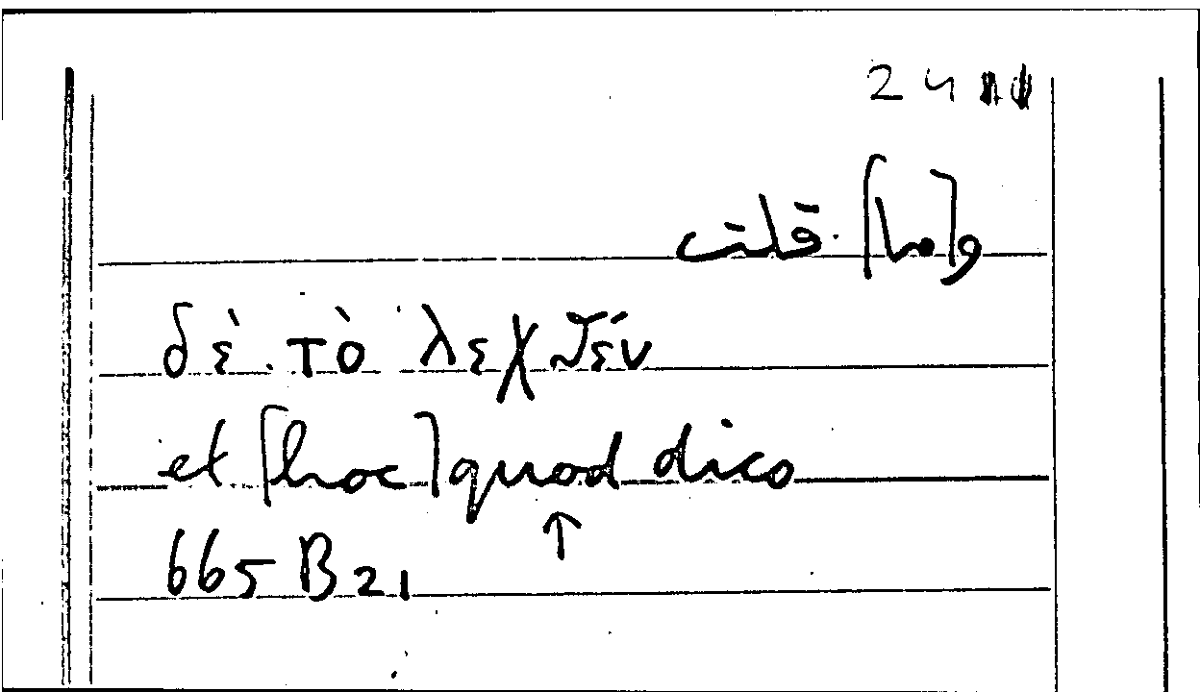 24
و[ما] قلت
δὲ τὸ λεχθέν
et [hoc] quod dico
↑
665 B 21